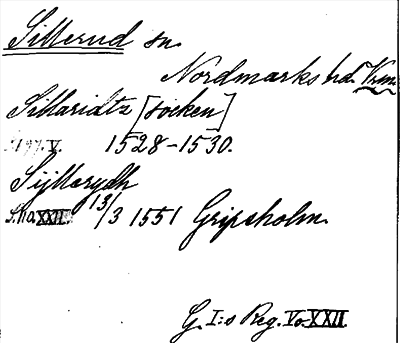 Sillerud sn.
Nordmarks hd. Vrm.
Sillaridtz [socken]
V. 1528-1530.
Sijllerydh
S. 110. XXII. 13/3 1551 Gripsholm.
G. I:s Reg. V o. XXII.